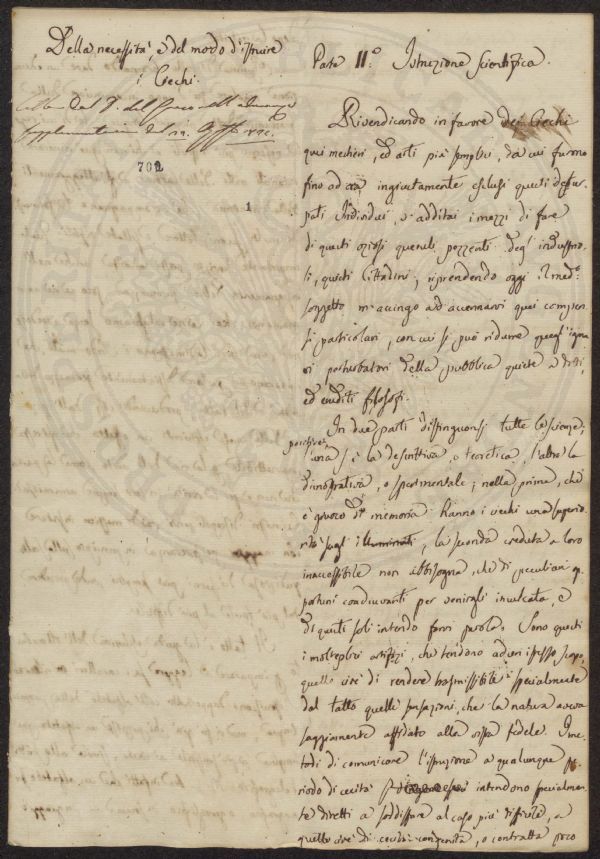 Della necessità, e del modo d'istruire
i Ciechi.
702
1
Parte II.ª Istruzione Scientifica.
Rivendicando in favore dei Ciechi
quei mestieri, ed arti più semplici, da cui furono
fino ad ora ingiustamente esclusi questi
Individui, v'additai i mezzi di fare
di questi oziosi queruli pezzenti degl'industrio-
si, quieti Cittadini; riprendendo oggi il med.º
soggetto m'accingo ad accennarvi quei
particolari, con cui si può ridurre quegl'
perturbatori della pubblica quiete a dotti,
ed eruditi filosofi.
In due parti distinguonsi tutte le scienze;
una si è la descrittiva, o teoretica, l'altra la
dimostrativa, o sperimentale; nella prima, che
è giuoco di memoria hanno i ciechi una superio-
rità sugl'illuminati, la seconda creduta a loro
inaccessibile non abbisogna, che di peculiari op-
portuni coadiuvanti per venirgli inculcata, e
di questi soli intendo farvi parola. Sono questi
i molteplici artifizj, che tendono ad un istesso scopo,
quello cioè di rendere trasmissibile specialmente
dal tatto quelle sensazioni, che la natura aveva
saggiamente affidato alla vista fedele. I me-
todi di comunicare l'istruzione a qualunque pe-
riodo di cecità intendono specialmen-
te diretti a soddisfare al caso più difficile, a
quello cioè di cecità congenita, o contratta poco